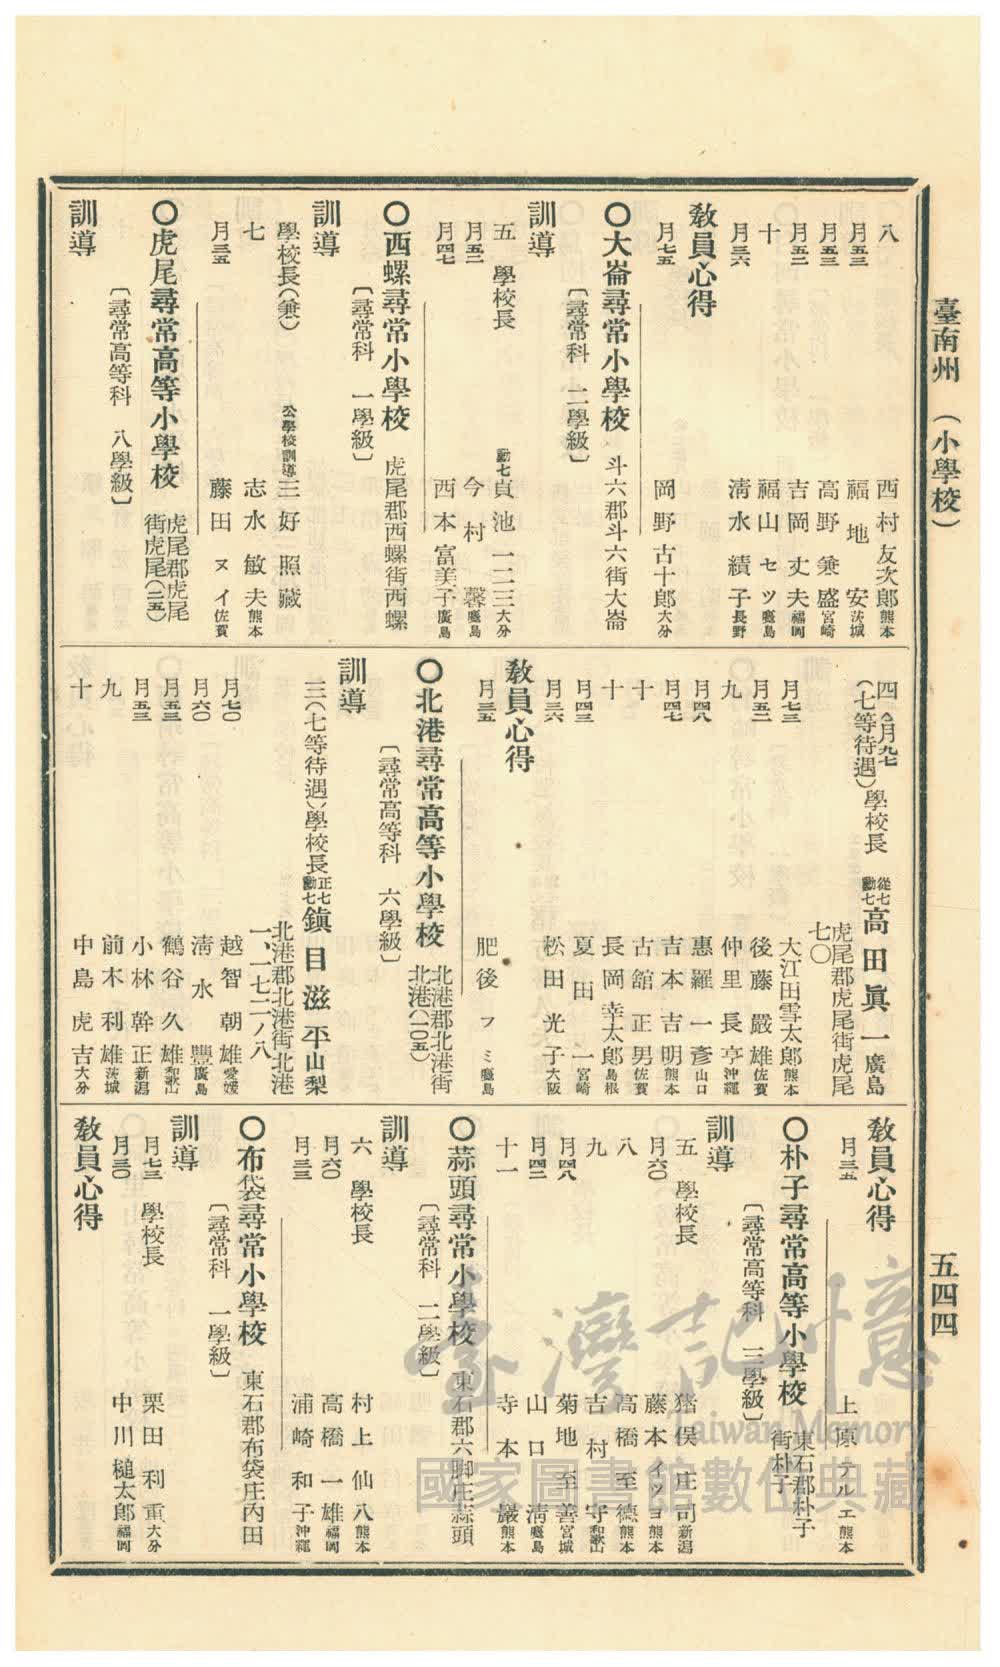 臺南州 (小學校)
五四四
八 西村友次郎 熊本
月五三 福地安 茨城
月五三 高野兼盛 宮崎
月五二 吉岡丈夫 福岡
十 福山セツ 鹿島
月三六 淸水績子 長野
敎員心得
月七五 岡野古十郎 大分
〇大崙尋常小學校 斗六郡斗六街大崙
〔尋常科 二學級〕
訓導
五 學校長 勳七 貞池一二三 大分
月五二 今村馨 鹿島
月四七 西本富美子 廣島
〇西螺尋常小學校 虎尾郡西螺街西螺
〔尋常科 一學級〕
訓導
學校長(兼) 公學校訓導 三好照藏
七 志水敏夫 熊本
月三五 藤田ヌイ 佐賀
〇虎尾尋常高等小學校 虎尾郡虎尾街虎尾(二五)
〔尋常高等科 八學級〕
訓導
四 月九七
(七等待遇)學校長 從七勳七 高田眞一 廣島
虎尾郡虎尾街虎尾七〇
月七三 大江田雪太郎 熊本
月五二 後藤嚴雄 佐賀
九 仲里長亨 沖繩
月四八 惠羅一彥 山口
月四七 吉本吉明 熊本
十 古舘正男 佐賀
十 長岡幸太郎 島根
月四三 夏田一 宮崎
月三六 松田光子 大阪
敎員心得
月三五 肥後フミ 鹿島
〇北港尋常高等小學校 北港郡北港街北港(一〇五)
〔尋常高等科 六學級〕
訓導
三(七等待遇)學校長 正七勳七 鎭目滋平 山梨
北港郡北港街北港一、一七二ノ八
月七〇 越智朝雄 愛媛
月六〇 淸水豐 廣島
月五三 鶴谷久雄 和歌山
月五三 小林幹正 新潟
九 前木利雄 茨城
十 中島虎吉 大分
敎員心得
月三五 上原テルエ 熊本
〇朴子尋常高等小學校 東石郡朴子街朴子
〔尋常高等科 三學級〕
訓導
五 學校長 猪俣庄司 新潟
月六〇 藤本イツヨ 熊本
八 高橋至德 熊本
九 吉村守 和歌山
月四八 菊地至善 宮城
月四二 山口淸 鹿島
十一 寺本巖 熊本
〇蒜頭尋常小學校 東石郡六脚庄蒜頭
〔尋常科 二學級〕
訓導
六 學校長 村上仙八 熊本
月六〇 高橋一雄 福岡
月三三 浦崎和子 沖繩
〇布袋尋常小學校 東石郡布袋庄內田
〔尋常科 一學級〕
訓導
月七三 學校長 栗田利重 大分
月三〇 中川槌太郎 福岡
敎員心得
臺灣記憶
Taiwan Memory
國家圖書館數位典藏